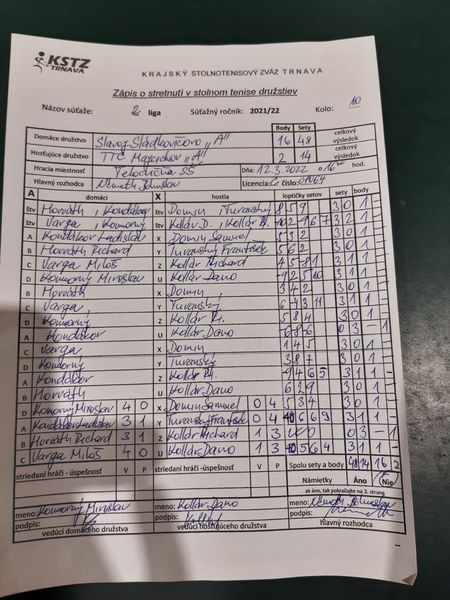 KSTZ
TRNAVA
KRAJSKÝ STOLNOTENISOVÝ ZVÄZ TRNAVA
Zápis o stretnutí v stolnom tenise družstiev
Názov súťaže: 2 liga Súťažný ročník: 2021/22 Kolo: 10
Body Sety
Domáce družstvo Slavoj Sládkovičovo "A" 16 48 celkový výsledok
Hosťujúce družstvo TTC Majcichov "A" 2 14 celkový výsledok
Hracia miestnosť Telocvičňa SŠ Dňa: 12.3.2022 o 16 00 hod.
Hlavný rozhodca Németh Bohuslav Licencia: C číslo:
A domáci X hostia loptičky setov sety body
štv Horváth, Kondákor štv Domin, Turanský 8 5 9 3 0 1 -
štv Varga, Komorný štv Kollár D., Kollár R. 3 2 1 -
A Kondákor Ladislav X Domin Samuel 3 0 1 -
B Horváth Richard Y Turanský František 5 6 2 3 0 1 -
C Varga Miloš Z Kollár Richard 3 1 1 -
D Komorný Miroslav U Kollár Dano 3 1 1 -
B Horváth X Domin 3 4 2 3 0 1 -
C Varga Y Turanský 3 1 1 -
D Komorný Z Kollár R. 5 8 4 3 0 1 -
A Kondákor U Kollár Dano 0 3 - 1
C Varga X Domin 1 4 5 3 0 1 -
D Komorný Y Turanský 3 8 7 3 0 1 -
A Kondákor Z Kollár R. -9 4 6 5 3 1 1 -
B Horváth U Kollár Dano 6 2 9 3 0 1 -
D Komorný Miroslav 4 0 X Domin Samuel 0 4 5 3 4 3 0 1 -
A Kondákor Ladislav 3 1 Y Turanský František 0 4 3 1 1 -
B Horváth Richard 3 1 Z Kollár Richard 1 3 0 3 - 1
C Varga Miloš 4 0 U Kollár Dano 1 3 3 1 1
striedaní hráči - úspešnosť V P striedaní hráči -úspešnosť V P Spolu sety a body 48 14 16 2
Námietky Áno Nie
ak áno, tak pokračujte na 2. strang
meno: Komorný Miroslav meno: Kollár Dano meno: Németh Bohuslav
podpis: podpis: podpis:
vedúci domáceho družstva vedúci hosťujúceho družstva hlavný rozhodca